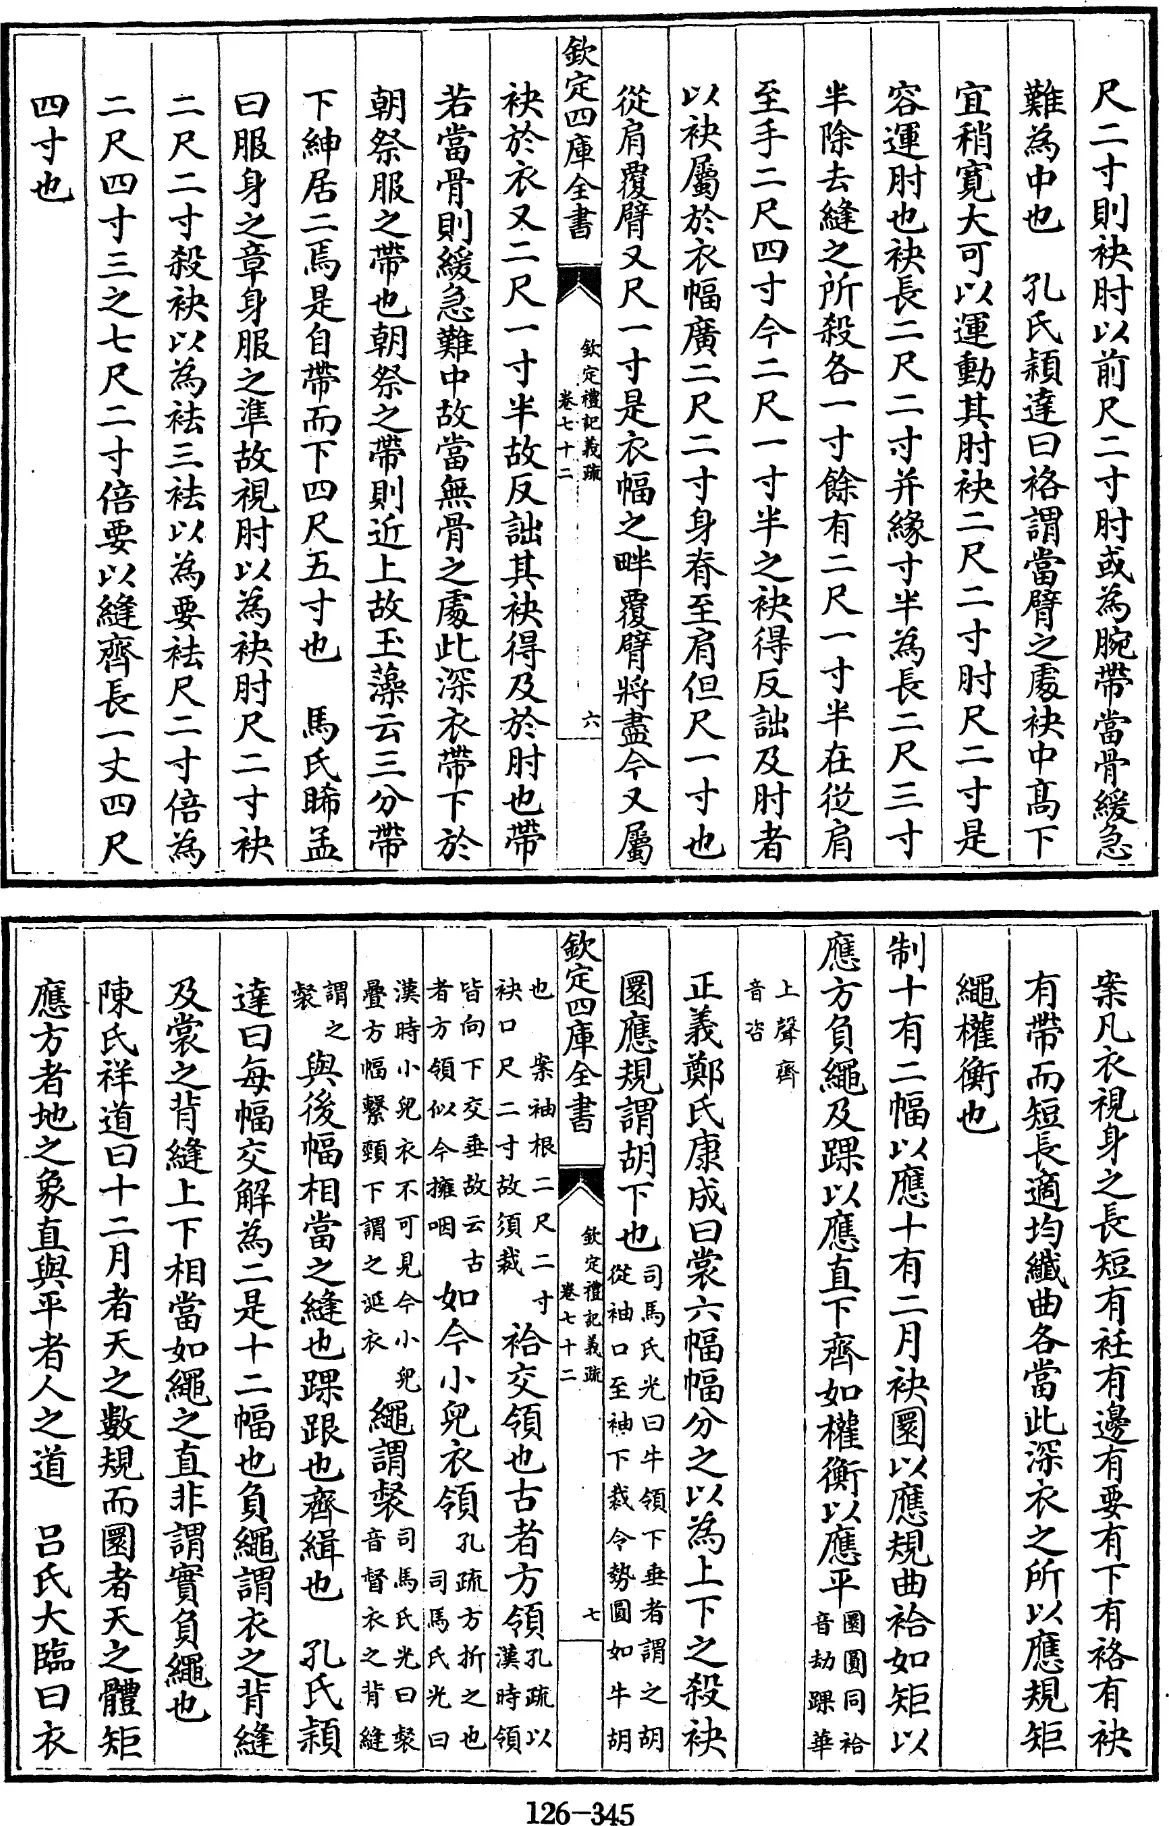 尺二寸則袂肘以前尺二寸肘或為腕帶當骨緩急
難為中也　孔氏穎達曰袼謂當臂之處袂中高下
宜稍寛大可以運動其肘袂二尺二寸肘尺二寸是
容運肘也袂長二尺二寸并緣寸半為長二尺三寸
半除去縫之所殺各一寸餘有二尺一寸半在從肩
至手二尺四寸今二尺一寸半之袂得反詘及肘者
以袂屬於衣幅廣二尺二寸身脊至肩但尺一寸也
從肩覆臂又尺一寸是衣幅之畔覆臂將盡今又屬
欽定四庫全書
欽定禮記義疏
卷七十二
六
袂於衣又二尺一寸半故反詘其袂得及於肘也帶
若當骨則緩急難中故當無骨之處此深衣帶下於
朝祭服之帶也朝祭之帶則近上故玉藻云三分帶
下紳居二焉是自帶而下四尺五寸也　馬氏睎孟
曰服身之章身服之準故視肘以為袂肘尺二寸袂
二尺二寸殺袂以為袪三袪以為要袪尺二寸倍為
二尺四寸三之七尺二寸倍要以縫齊長一丈四尺
四寸也
案凡衣視身之長短有衽有邊有要有下有袼有袂
有帶而短長適均纖曲各當此深衣之所以應規矩
繩權衡也
制十有二幅以應十有二月袂圜以應規曲袷如矩以
應方負繩及踝以應直下齊如權衡以應平圜圓同袷
音劫踝華
上聲齊
音咨
正義鄭氏康成曰裳六幅幅分之以為上下之殺袂
圜應規謂胡下也司馬氏光曰牛領下垂者謂之胡
從袖口至袖下裁令勢圓如牛胡
欽定四庫全書
欽定禮記義疏
卷七十二
七
也　案袖根二尺二寸
袂口尺二寸故須裁
袷交領也古者方領孔疏以
漢時領
皆向下交垂故云古
者方領似今擁咽
如今小兒衣領孔疏方折之也
司馬氏光曰
漢時小兒衣不可見今小兒
疊方幅繫頸下謂之涎衣
繩謂裻司馬氏光曰裻
音督衣之背縫
謂之
裻
與後幅相當之縫也踝跟也齊緝也　孔氏穎
達曰每幅交解為二是十二幅也負繩謂衣之背縫
及裳之背縫上下相當如繩之直非謂實負繩也
陳氏祥道曰十二月者天之數規而圜者天之體矩
應方者地之象直與平者人之道　呂氏大臨曰衣
126-345